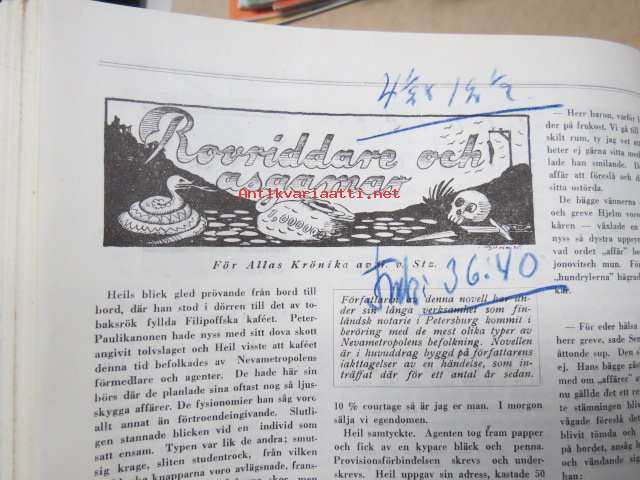 Rovriddare och
asgamar
Antikvariaatti.net
1,000000
För Allas Krönika av v. Stz.
36:40
Heils blick gled prövande från bord till
bord, där han stod i dörren till det av to-
baksrök fyllda Filipoffska kaféet. Peter-
Paulikanonen hade nyss med sitt dova skott
angivit tolvslaget och Heil visste att kaféet
denna tid befolkades av Nevametropolens
förmedlare och agenter. De hade här sin
börs där de planlade sina oftast nog så ljus-
skygga affärer. De fysionomier han såg voro
allt annat än förtroendeingivande. Slutli-
gen stannade blicken vid en individ som
satt ensam. Typen var lik de andra; smut-
sig krage, sliten studentrock, från vilken
knapparna voro avlägsnade, frans-
skor, men
Författaren av denna novell har un-
der sin långa verksamhet som fin-
ländsk notarie i Petersburg kommit i
beröring med de mest olika typer av
Nevametropolens befolkning. Novellen
är i huvuddrag byggd på författarens
iakttagelser av en händelse, som in-
träffat där för ett antal år sedan.
10 % courtage så är jag er man. I morgon
sälja vi egendomen.
Heil samtyckte. Agenten tog fram papper
och fick av en kypare bläck och penna.
Provisionsförbindelsen skrevs och under-
skrevs. Heil uppgav sin adress, kastade 50
— Herr baron, varför
der på frukost. Vi gå
skilt rum, ty jag vet
heter ej gärna sitta med
lade han smilande.
affär att föreslå och
sitta ostörda.
De bägge vännerna
och greve Hjelm von
kåren — växlade en
nyss så dystra uppsyn
vad ordet „affär"
jonovitsch mun. För
„hundrylerna" hägrade
kär.
— För eder hälsa
herre greve, sade Sem
åttonde sup. Den
ej. Hans bägge gäster
med om „affären"
nu gällde det ett
te stämningen bliv
vågade föreslå det
blivit tömda och
på bordet, ansåg
och vändande sig
han: